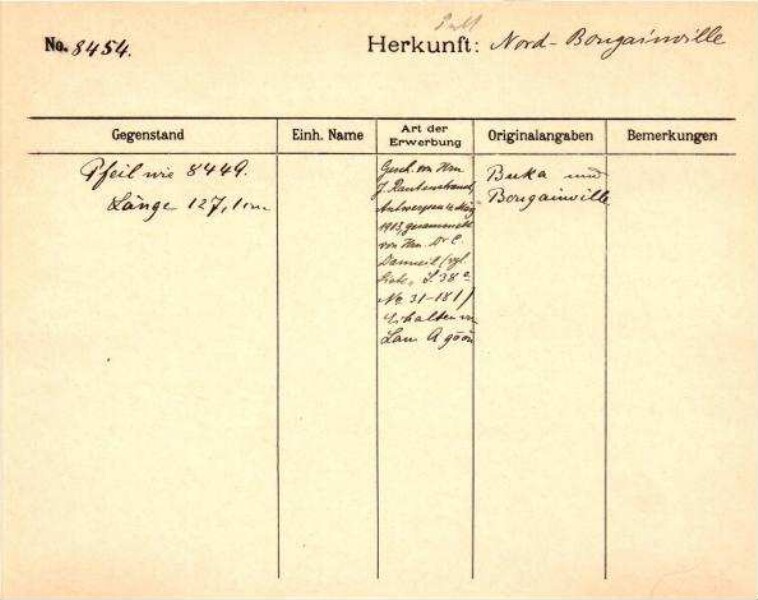 No. 8454.
Herkunft: Nord-Bougainville
Gegenstand
Einh. Name
Art der Erwerbung
Originalangaben
Bemerkungen
Pfeil wie 8449.
Länge 127,1 cm
Gesch. von Hrn
J. Rautenstrauch,
Antwerpen 12 März
1913, gesammelt
von Hrn. Dr. E.
(vgl.
S. 38a
No 31-181)
Erhalten
Buka und
Bougainville